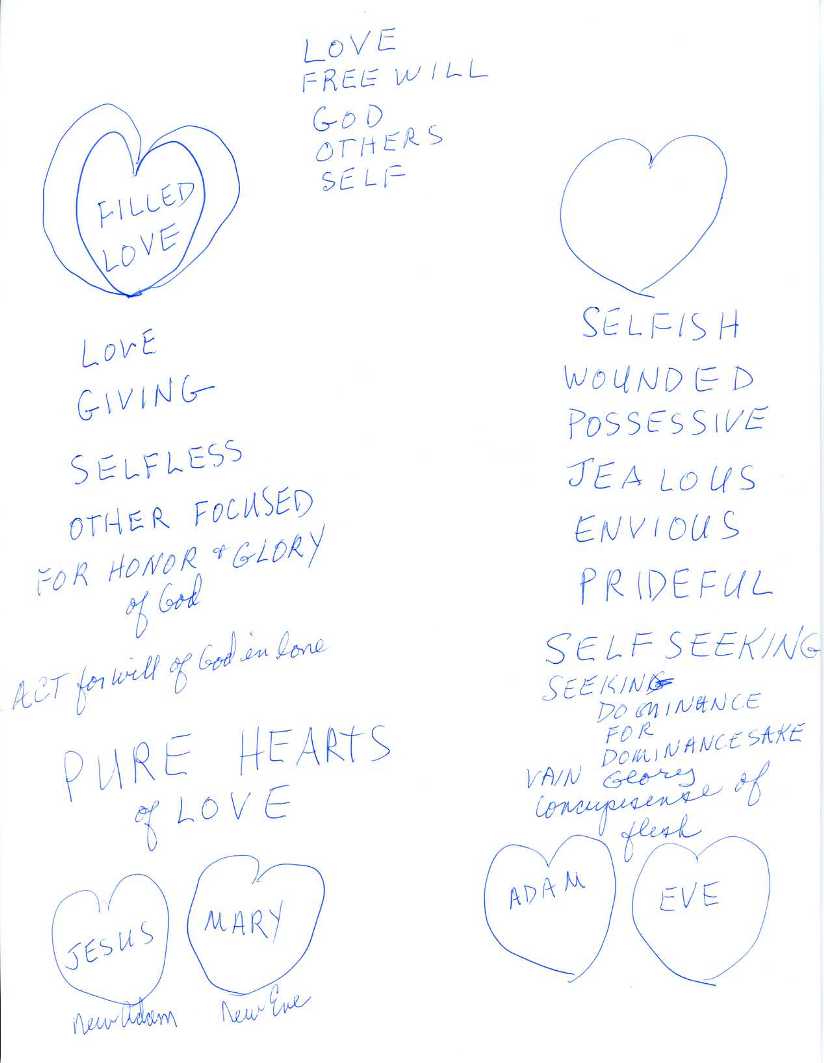 LOVE
FREE WILL
GOD
OTHERS
SELF
FILLED
LOVE
LOVE
GIVING
SELFLESS
OTHER FOCUSED
FOR HONOR & GLORY
of God
ACT for will of God in love
PURE HEARTS
of LOVE
JESUS
MARY
New Adam
New Eve
SELFISH
WOUNDED
POSSESSIVE
JEALOUS
ENVIOUS
PRIDEFUL
SELF SEEKING
SEEKING
DOMINANCE
FOR
DOMINANCE SAKE
VAIN Glory
Concupisense of
flesh
ADAM
EVE